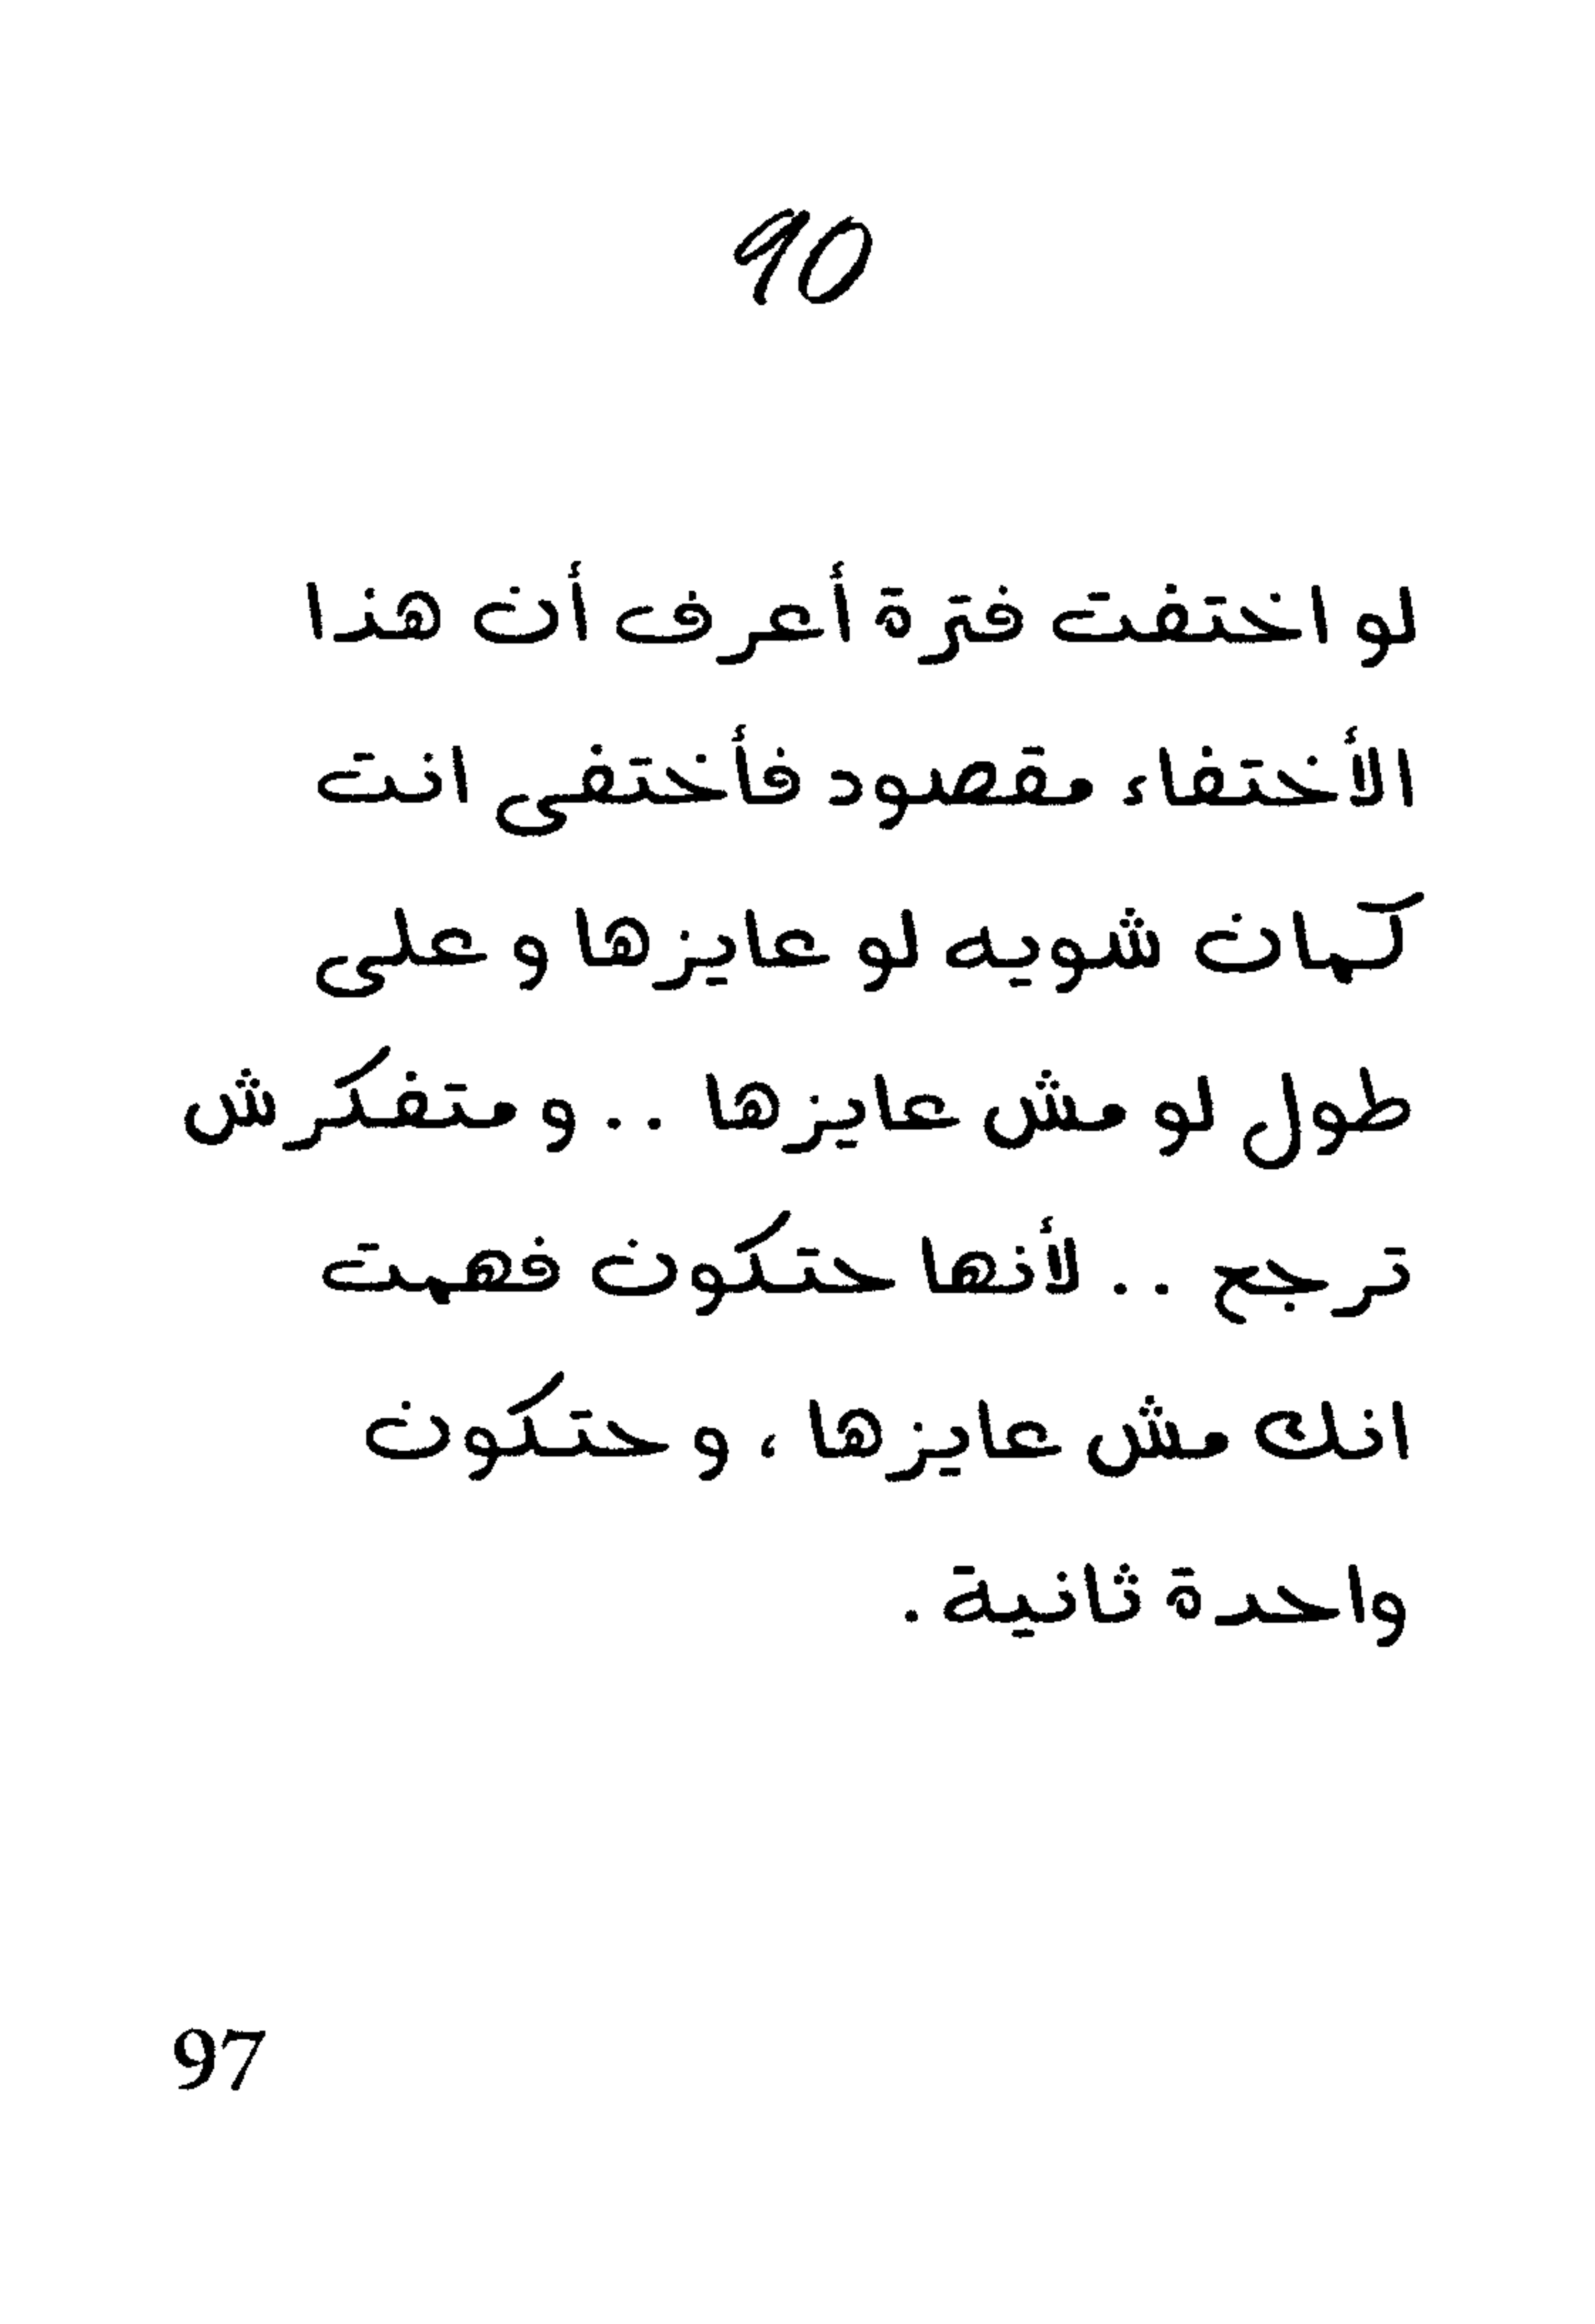 90
لو اختفت فترة أعرف أن هذا
الأختفاء مقصود فأختفى انت
كمان شويه لو عايزها و على
طول لو مش عايزها .. و متفكرش
ترجع .. لأنها حتكون فهمت
انك مش عايزها ، و حتكون
واحدة ثانية .
97